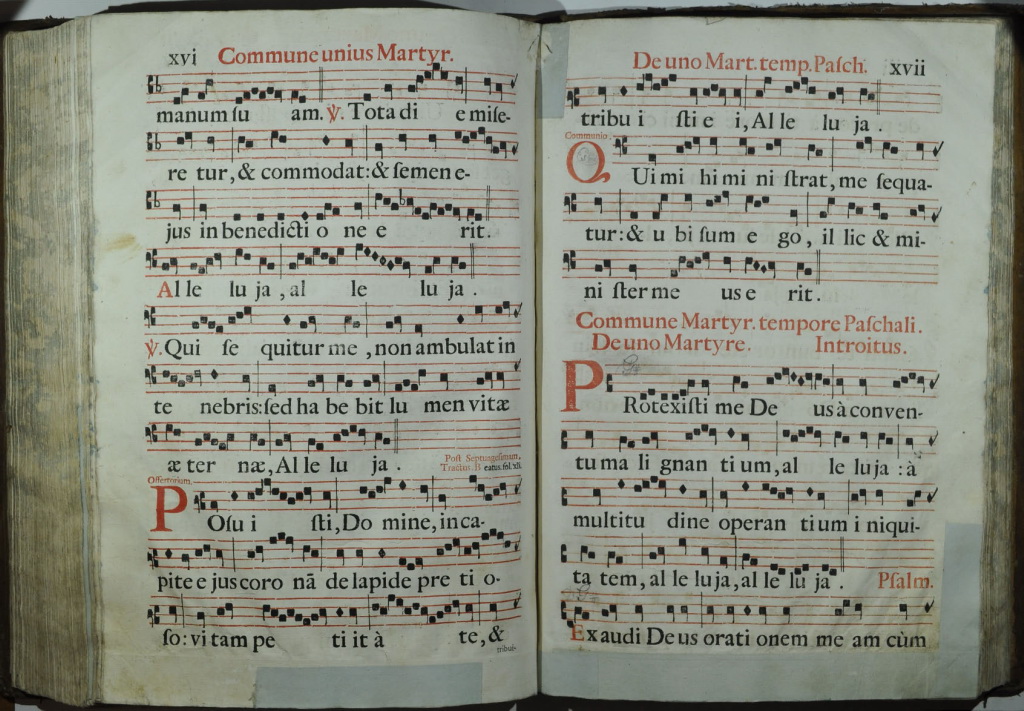 xvi Commune unius Martyr.
manum su am. ℣. Tota di e mise-
re tur, & commodat: & semen e-
jus in benedicti o ne e rit.
Al le lu ja, al le lu ja.
℣. Qui se quitur me, non ambulat in
te nebris: sed ha be bit lu men vitæ
æ ter næ, Al le lu ja.
Post Septuagesimam.
Tractus. Beatus. fol. xii.
Offertorium.
POsu i sti, Do mine, in ca-
pite e jus coro nã de lapide pre ti o-
so: vi tam pe ti it à te, &
tribui-
De uno Mart. temp. Pasch. xvii
tribu i sti e i, Al le lu ja.
Communio.
QUi mi hi mi ni strat, me sequa-
tur: & u bi sum e go, il lic & mi-
ni ster me us e rit.
Commune Martyr. tempore Paschali.
De uno Martyre. Introitus.
PRotexisti me De us à conven-
tu ma li gnan ti um, al le lu ja: à
multitu dine operan ti um i niqui-
ta tem, al le lu ja, al le lu ja. Psalm.
Exaudi De us orati onem me am cùm